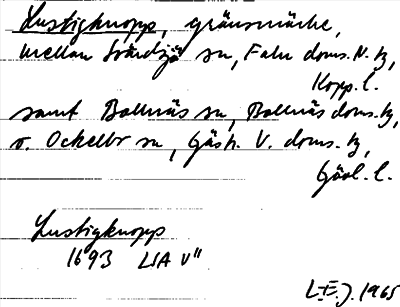 Lustigknopp, gränsmärke,
mellan Svärdsjö sn, Falu doms. N. tg,
Kopp. l.
samt Bollnäs sn, Bollnäs doms. tg,
o. Ockelbo sn, Gästr. V. doms. tg,
Gävl. l.
Lustigknopp
1693 LSA V"
L.E.J. 1965